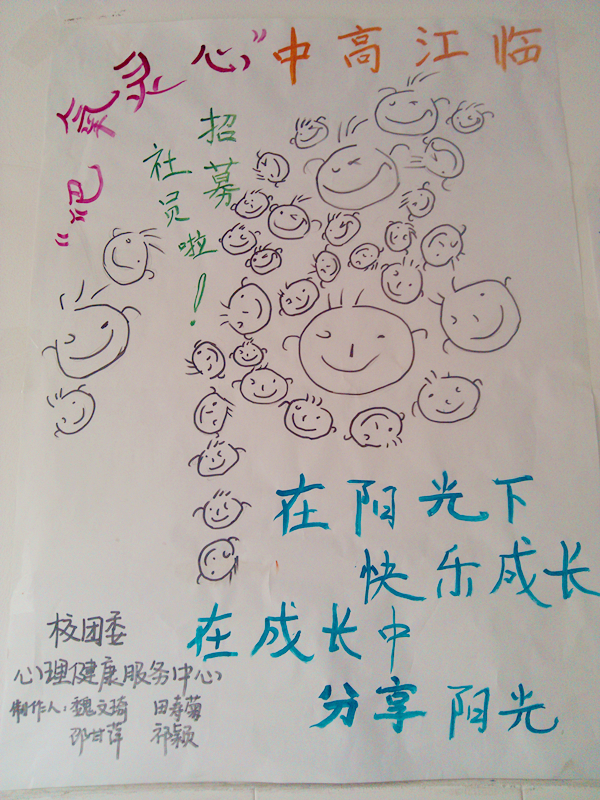 临江高中“心灵氧吧”
招募
社员啦！
在阳光下
快乐成长
在成长中
分享阳光
校团委
心理健康服务中心
制作人：魏文琦
邵甘萍 祁颖